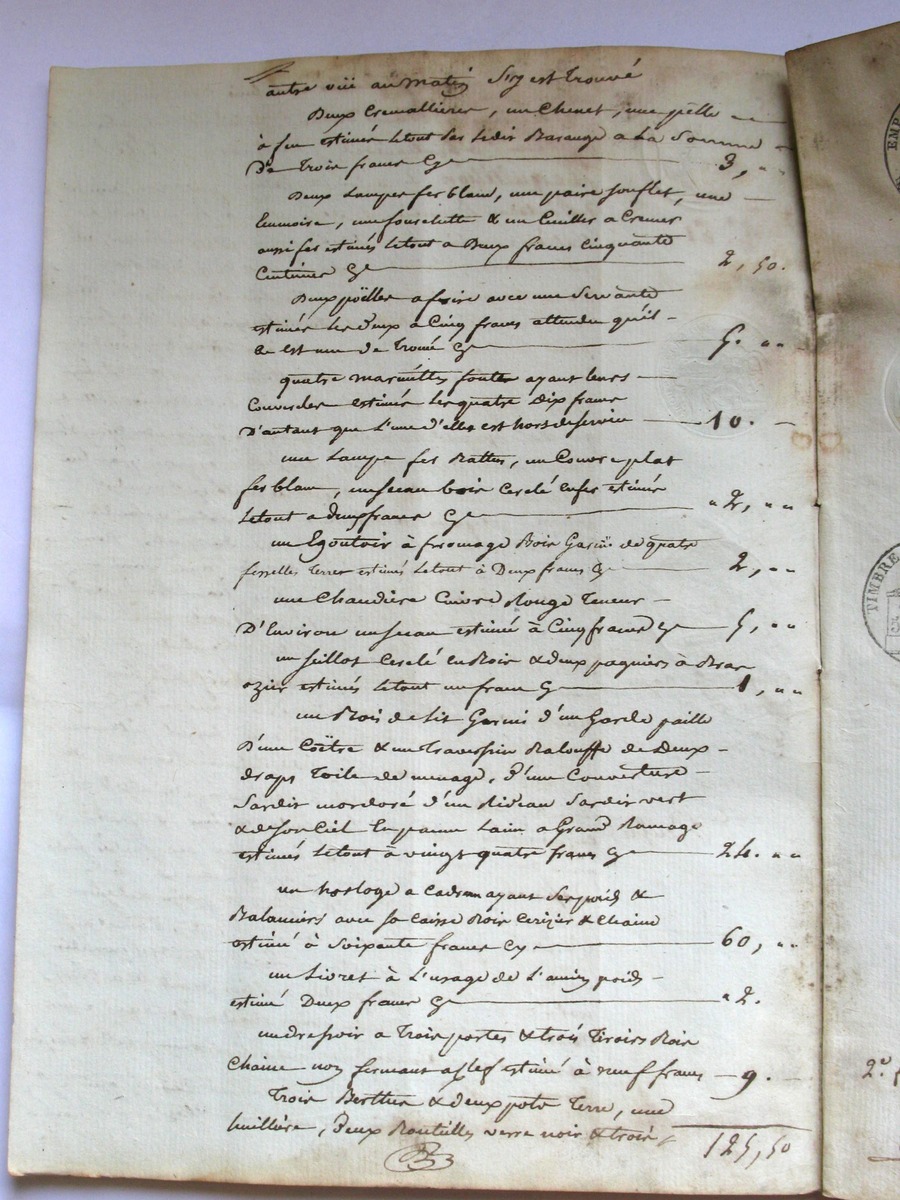 autre vüe au matin S'y est trouvé
Deux Cremallieres, un Chenet, une pelle
à feu estimés le tout par ledit Barange a la Somme
De trois francs Cy 3, ""
Deux Lampes fer blanc, une paire souflet, une
une fourchette & un Cuiller a Cremer
aussi fer estimés le tout a Deux francs Cinquante
Centimes Cy 2, 50.
Deux poëlles a frire avec une Servante
estimés les deux a Cinq francs attendu qu'il
en est une de Trouée Cy 5. ""
quatre marmittes fontes ayant leurs
Couvercles estimés les quatre Dix francs
D'autant que L'une d'elles est hors de service 10.
une Lampe fer Battu, un Couvre plat
fer blanc, un seau bois Cerclé en fer estimés
le tout a deux francs Cy " 2, ""
un Egoutoir à fromage Bois Garni de quatre
fesselles terres estimés le tout à Deux francs Cy 2, ""
une Chaudiere Cuivre Rouge Teneur
D'Environ un seau estimée à Cinq francs Cy 5, ""
un seillot Cerclé en Bois & deux pagniers à Bras
ozier estimés le tout un franc Cy 1, ""
un Bois de lit Garni d'un Garde paille
D'une Coëtre & un Traversin Balouffe de Deux
draps Toile de menage, d'une Couverture
Sardis mordoré d'un Rideau Sardis vert
& de son Ciel En panne Laine a Grand Ramage
estimés le tout à vingt quatre francs Cy 24. ""
un horloge a Cadran ayant Ses poids &
Balanciers avec sa Caisse Bois Cerizier & Chaine
estimé à Soixante francs Cy 60, ""
un Livret à L'usage de L'amin poids
estimé Deux francs Cy " 2.
un dressoir a Trois portes & trois Tiroirs Bois
Chaine non fermant a clef estimé à neuf francs 9.
Trois Berthes & deux pots Terre, une
huillière, Deux Bouteilles verre noir & trois
125,50
EMP
TIMBRE
2e